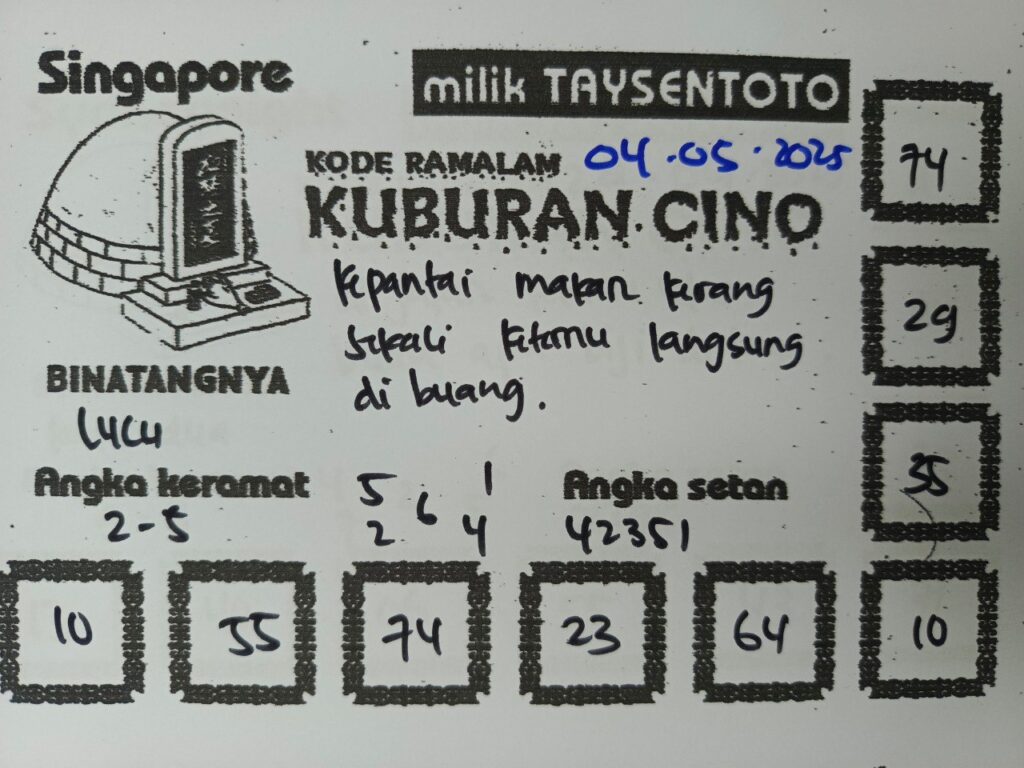 Singapore
milik TAYSENTOTO
KODE RAMALAM 04.05.2025
KUBURAN CINO
kepantai makan kerang
sekali ketemu langsung
di buang.
BINATANGNYA
LUCU
Angka keramat
2-5
5 1
6
2 4
Angka setan
42351
74
29
35
10 55 74 23 64 10